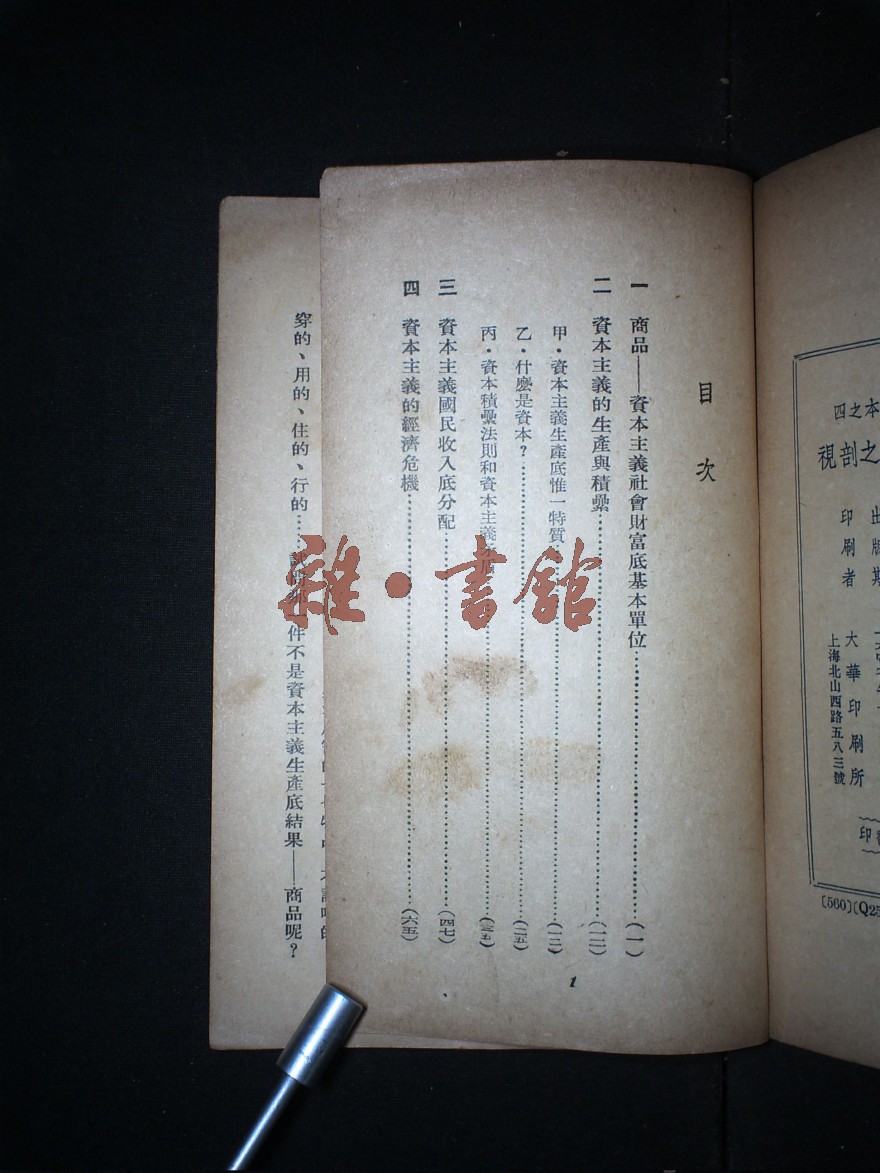 本之四
之剖視
出版
印刷者
大華印刷所
上海北山西路五八三號
印
〔560〕〔Q25
目次
一 商品——資本主義社會財富底基本單位……(一)
二 資本主義的生產與積纍……(一二)
甲·資本主義生產底惟一特質……(一二)
乙·什麼是資本？……(二五)
丙·資本積纍法則和資本主義……(三五)
三 資本主義國民收入底分配……(四七)
四 資本主義的經濟危機……(六五)
1
穿的、用的、住的、行的……一件不是資本主義生產底結果——商品呢？
雜·書館